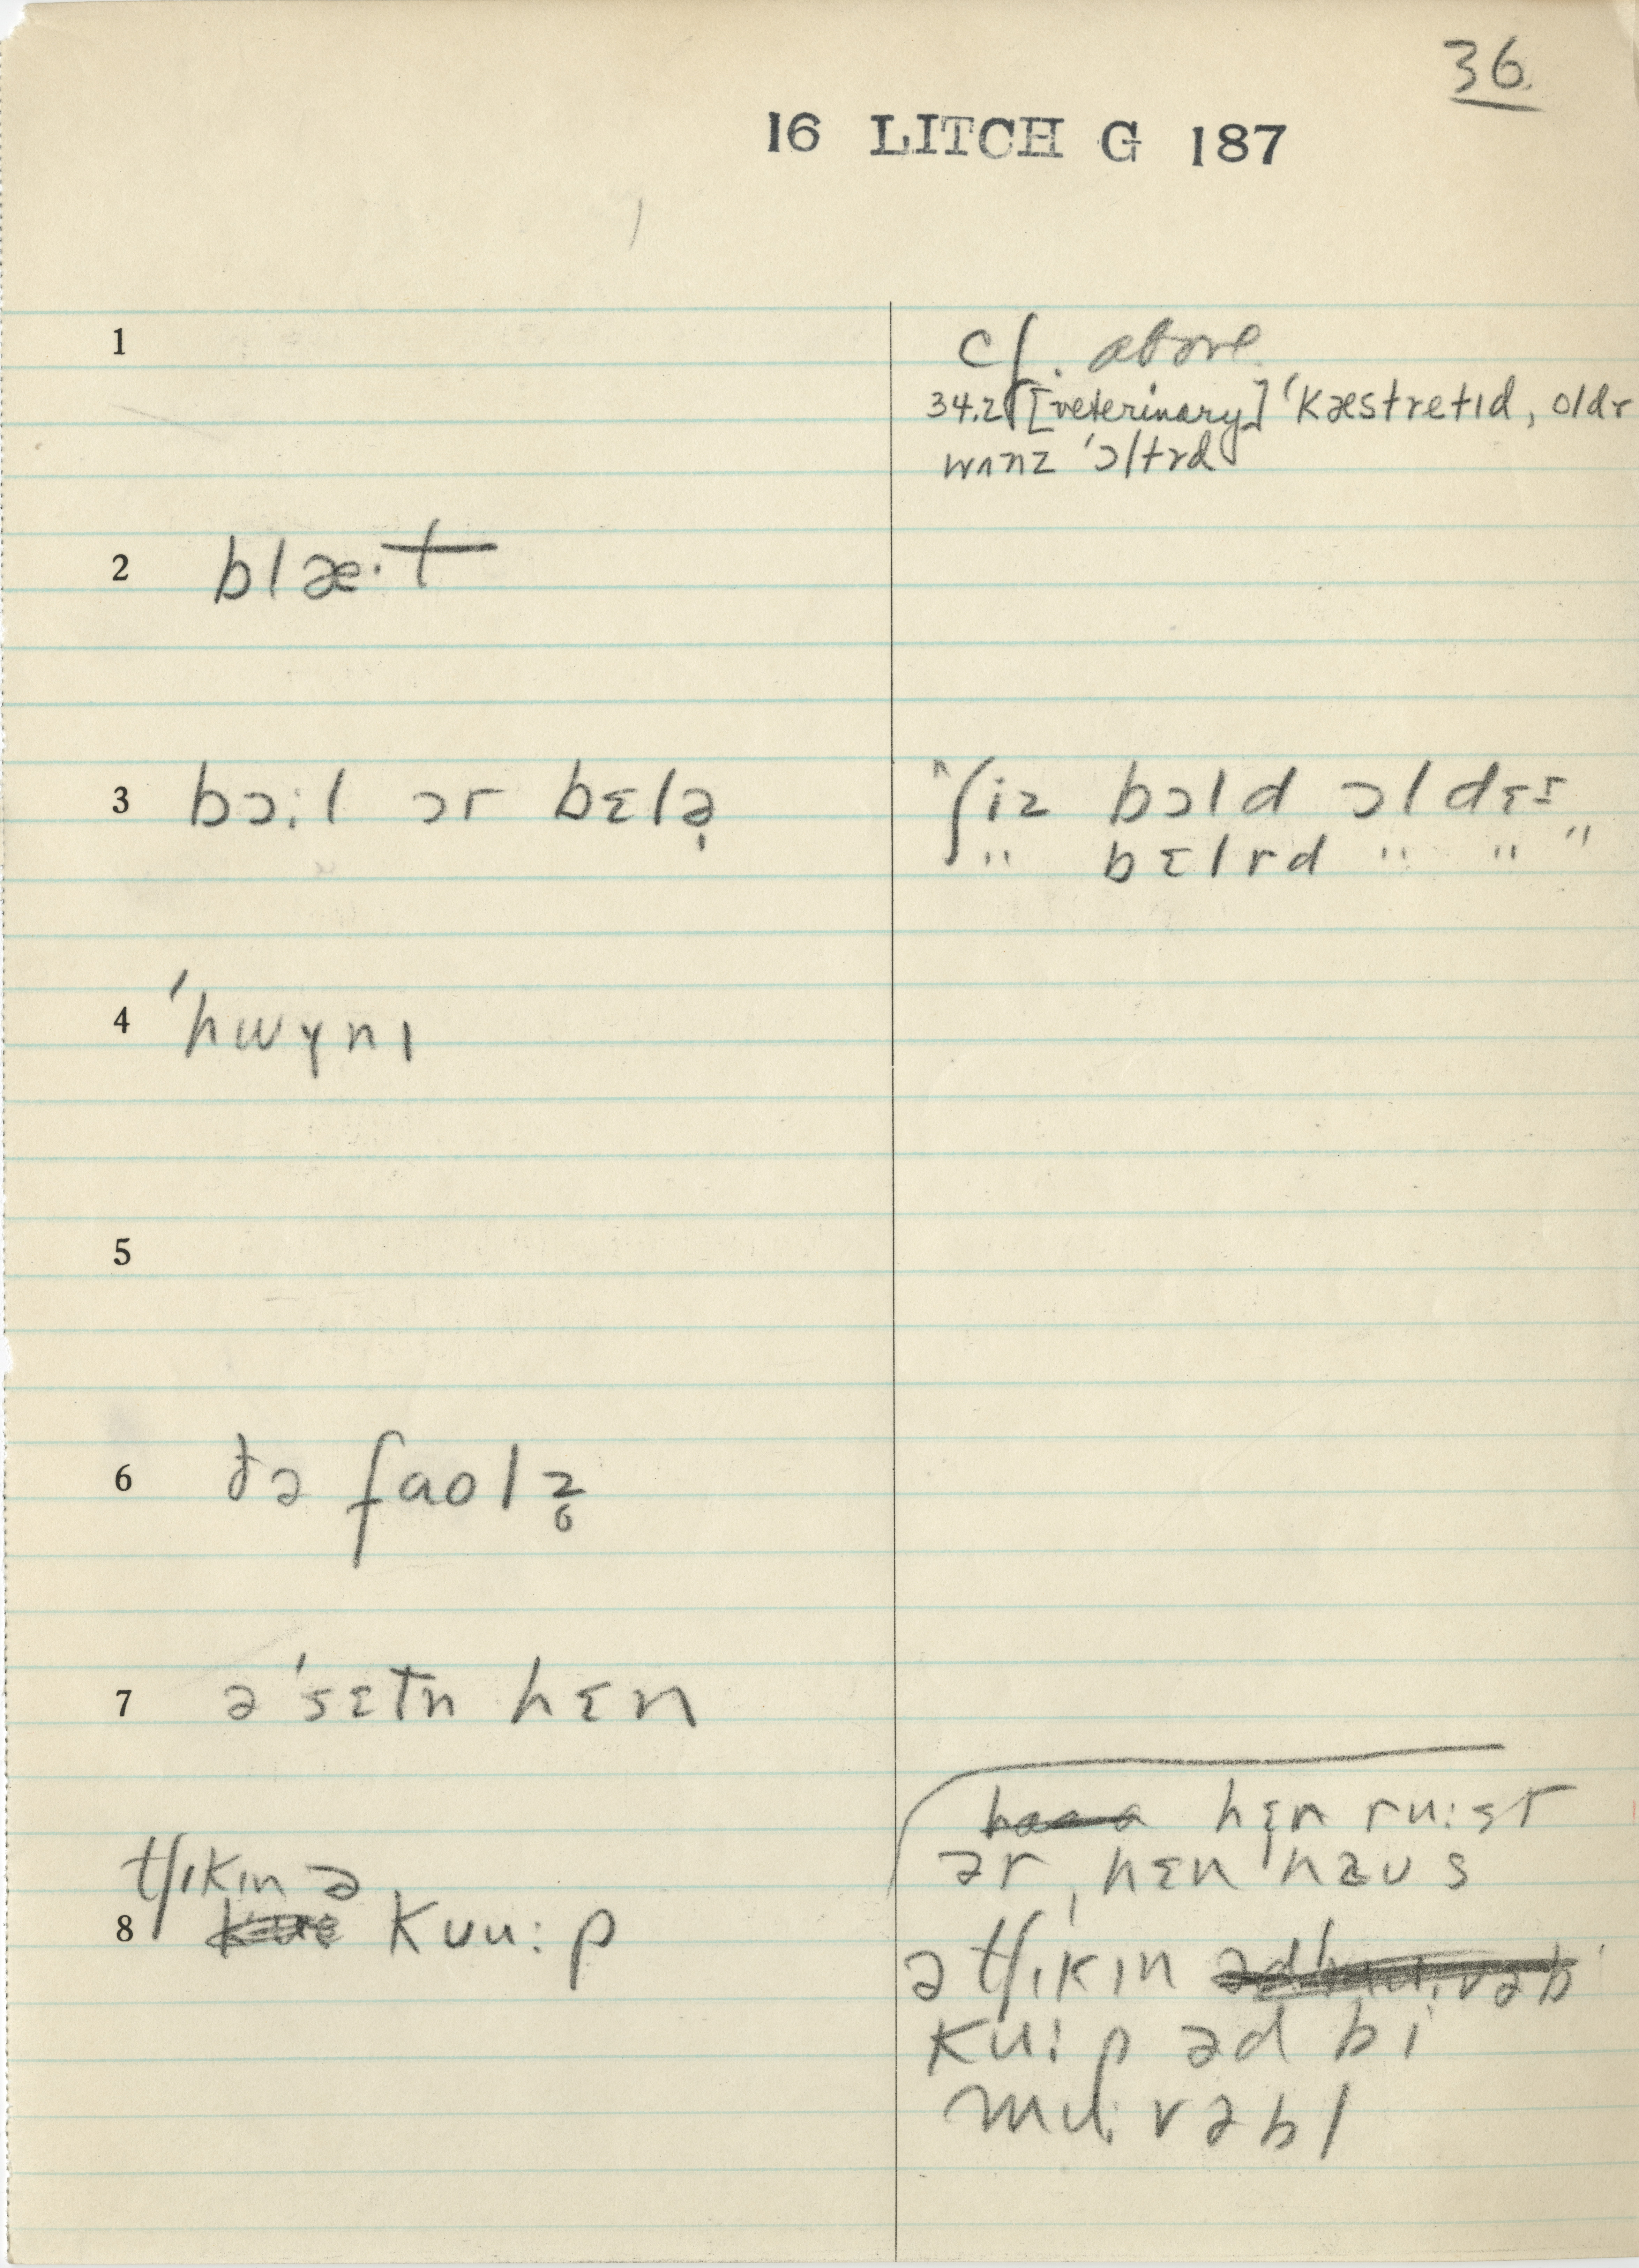 36.
16 LITCH G 187
1
cf. above
34.2 [veterinary] ˈkæstretɪd, oldr
wʌnz ˈɔltrd
2 blæ·t
3 bɔ:l ɔr bɛlə̩
ˆʃiz bɔld ɔl dɛɪ
" bɛlrd " " "
4 ˈhwɣnɪ
5
6 ðə faolz̥
7 əˈsɛtn hɛn
hɛn ru:st
ər hɛn haus
tʃɪkɪn ə
8 kuu:p
ə tʃɪkɪn
ku:p əd bi
mu:vəbl